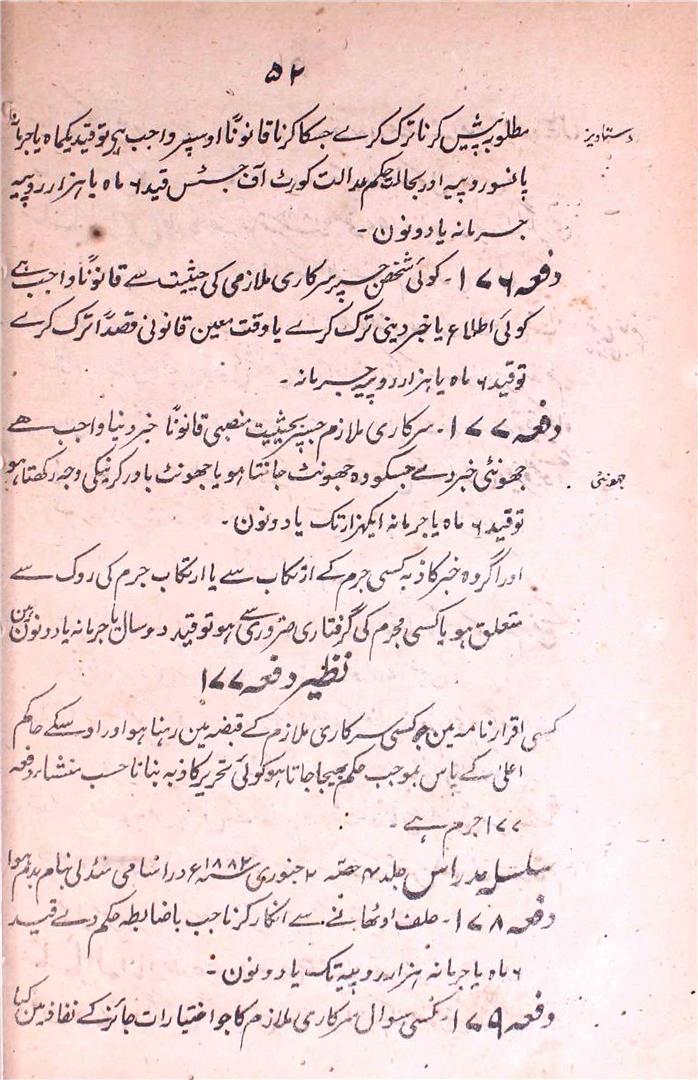 ۵۲
دستاویز
مطلوبہ پیش کرنا ترک کرے جسکا کرنا قانوناً اوسپر واجب ہی تو قید یکماہ یا جرمانہ
پانسو روپیہ اور بحالت حکم عدالت کورٹ آف جسٹس قید ۶ ماہ یا ہزار روپیہ
جرمانہ یا دونون ۔
دفعہ ۱۷۶ ۔ کوئی شخص جسپر سرکاری ملازمی کی حیثیت سے قانوناً واجب ہے
کوئی اطلاع یا خبر دینی ترک کرے یا وقت معین قانونی قصداً ترک کرے
تو قید ۶ ماہ یا ہزار روپیہ جرمانہ ۔
دفعہ ۱۷۷ ۔ سرکاری ملازم جسپر بحیثیت منصبی قانوناً خبر دنیا واجب ھے
جھونٹی
جھونٹی خبر دے جسکو وہ جھونٹ جانتا ہو یا جھونٹ باور کرنیکی وجہ رکھتا ہو
تو قید ۶ ماہ یا جرمانہ ایکہزار تک یا دونون ۔
اور اگر وہ خبر کاذبہ کسی جرم کے ارتکاب سے یا ارتکاب جرم کی روک سے
متعلق ہو یا کسی مجرم کی گرفتاری ضروری سے ہو تو قید دوسال یا جرمانہ یا دونون ہین
نظیر دفعہ ۱۷۷
کسی اقرار نامہ مین جو کسی سرکاری ملازم کے قبضہ مین رہنا ہو اور اوسکے حاکم
اعلیٰ کے پاس بموجب حکم بھیجا جاتا ہو کوئی تحریر کاذبہ بنانا حسب منشاء دفعہ
۱۷۷ جرم ہے ۔
سلسلہ مدراس جلد ۴ حصہ ۲ جنوری سنہ ۱۸۸۲ ع در اسامی منڈلی بنام
دفعہ ۱۷۸ ۔ حلف اوٹھانے سے انکار کرنا جب باضابطہ حکم دے قید
۶ ماہ یا جرمانہ ہزار روپیہ تک یا دونون ۔
دفعہ ۱۷۹ ۔ کسی سوال سرکاری ملازم کا جو اختیارات جائز کے نفاذ مین کیا